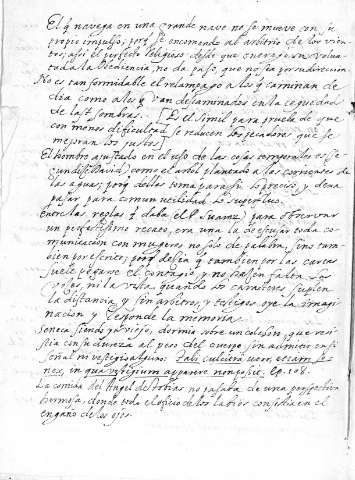 El q navega en una grande nave no se mueve con su
propio impulso, porq se encomendo al arbitrio de los vien
tos; asi el perfecto Religioso desde que entregò su volun
tad a la obediencia no da paso, que no sea por su direccion.
No es tan formidable el relampago a los q caminan de
dia como a los q van descaminados en la ceguedad
de las sombras. [Es el simil para prueba de que
con menos dificultad se reducen los pecadores que se
mejoran los justos]
El hombre ajustado en el uso de las cosas temporales es se
gun dice David, como el arbol plantado a las corrientes de
las aguas; porq dellas toma para si lo preciso, y dexa
pasar para comun utilidad lo superfluo.
Entre las reglas q daba el P. Suarez para observar
un perfectissimo recato, era una la de escusar toda co
municacion con mugeres no solo de palabra, sino tam
bien por escrito; porq decia q tambien por las cartas
suele pegarse el contagio, y no hacen falta los
ojos, ni la vista, quando los caracteres suplen
la distancia, y sin arbitros, y testigos oye la imagi
nacion y responde la memoria.
Seneca siendo ya viejo, dormia sobre un colchon, que resi
stia con su dureza al peso del cuerpo sin admitir en si
señal ni vestigio alguno: Tali culcitra utor, etiam se
nex, in qua vestigium apparere non possit. Ep. 108.
La comida del Angel de Tobias no pasaba de una perspectiva
hermosa, donde todo el oficio de los labios consistia en el
engaño de los ojos.